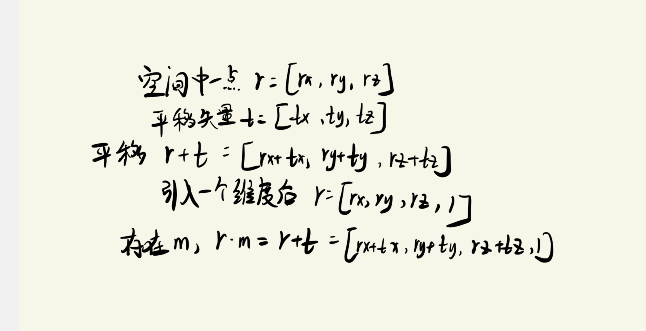 空间中一点 r = [rx, ry, rz]
平移矢量 t = [tx, ty, tz]
平移 r+t = [rx+tx, ry+ty, rz+tz]
引入一个维度后 r = [rx, ry, rz, 1]
存在m, r·m = r+t = [rx+tx, ry+ty, rz+tz, 1]